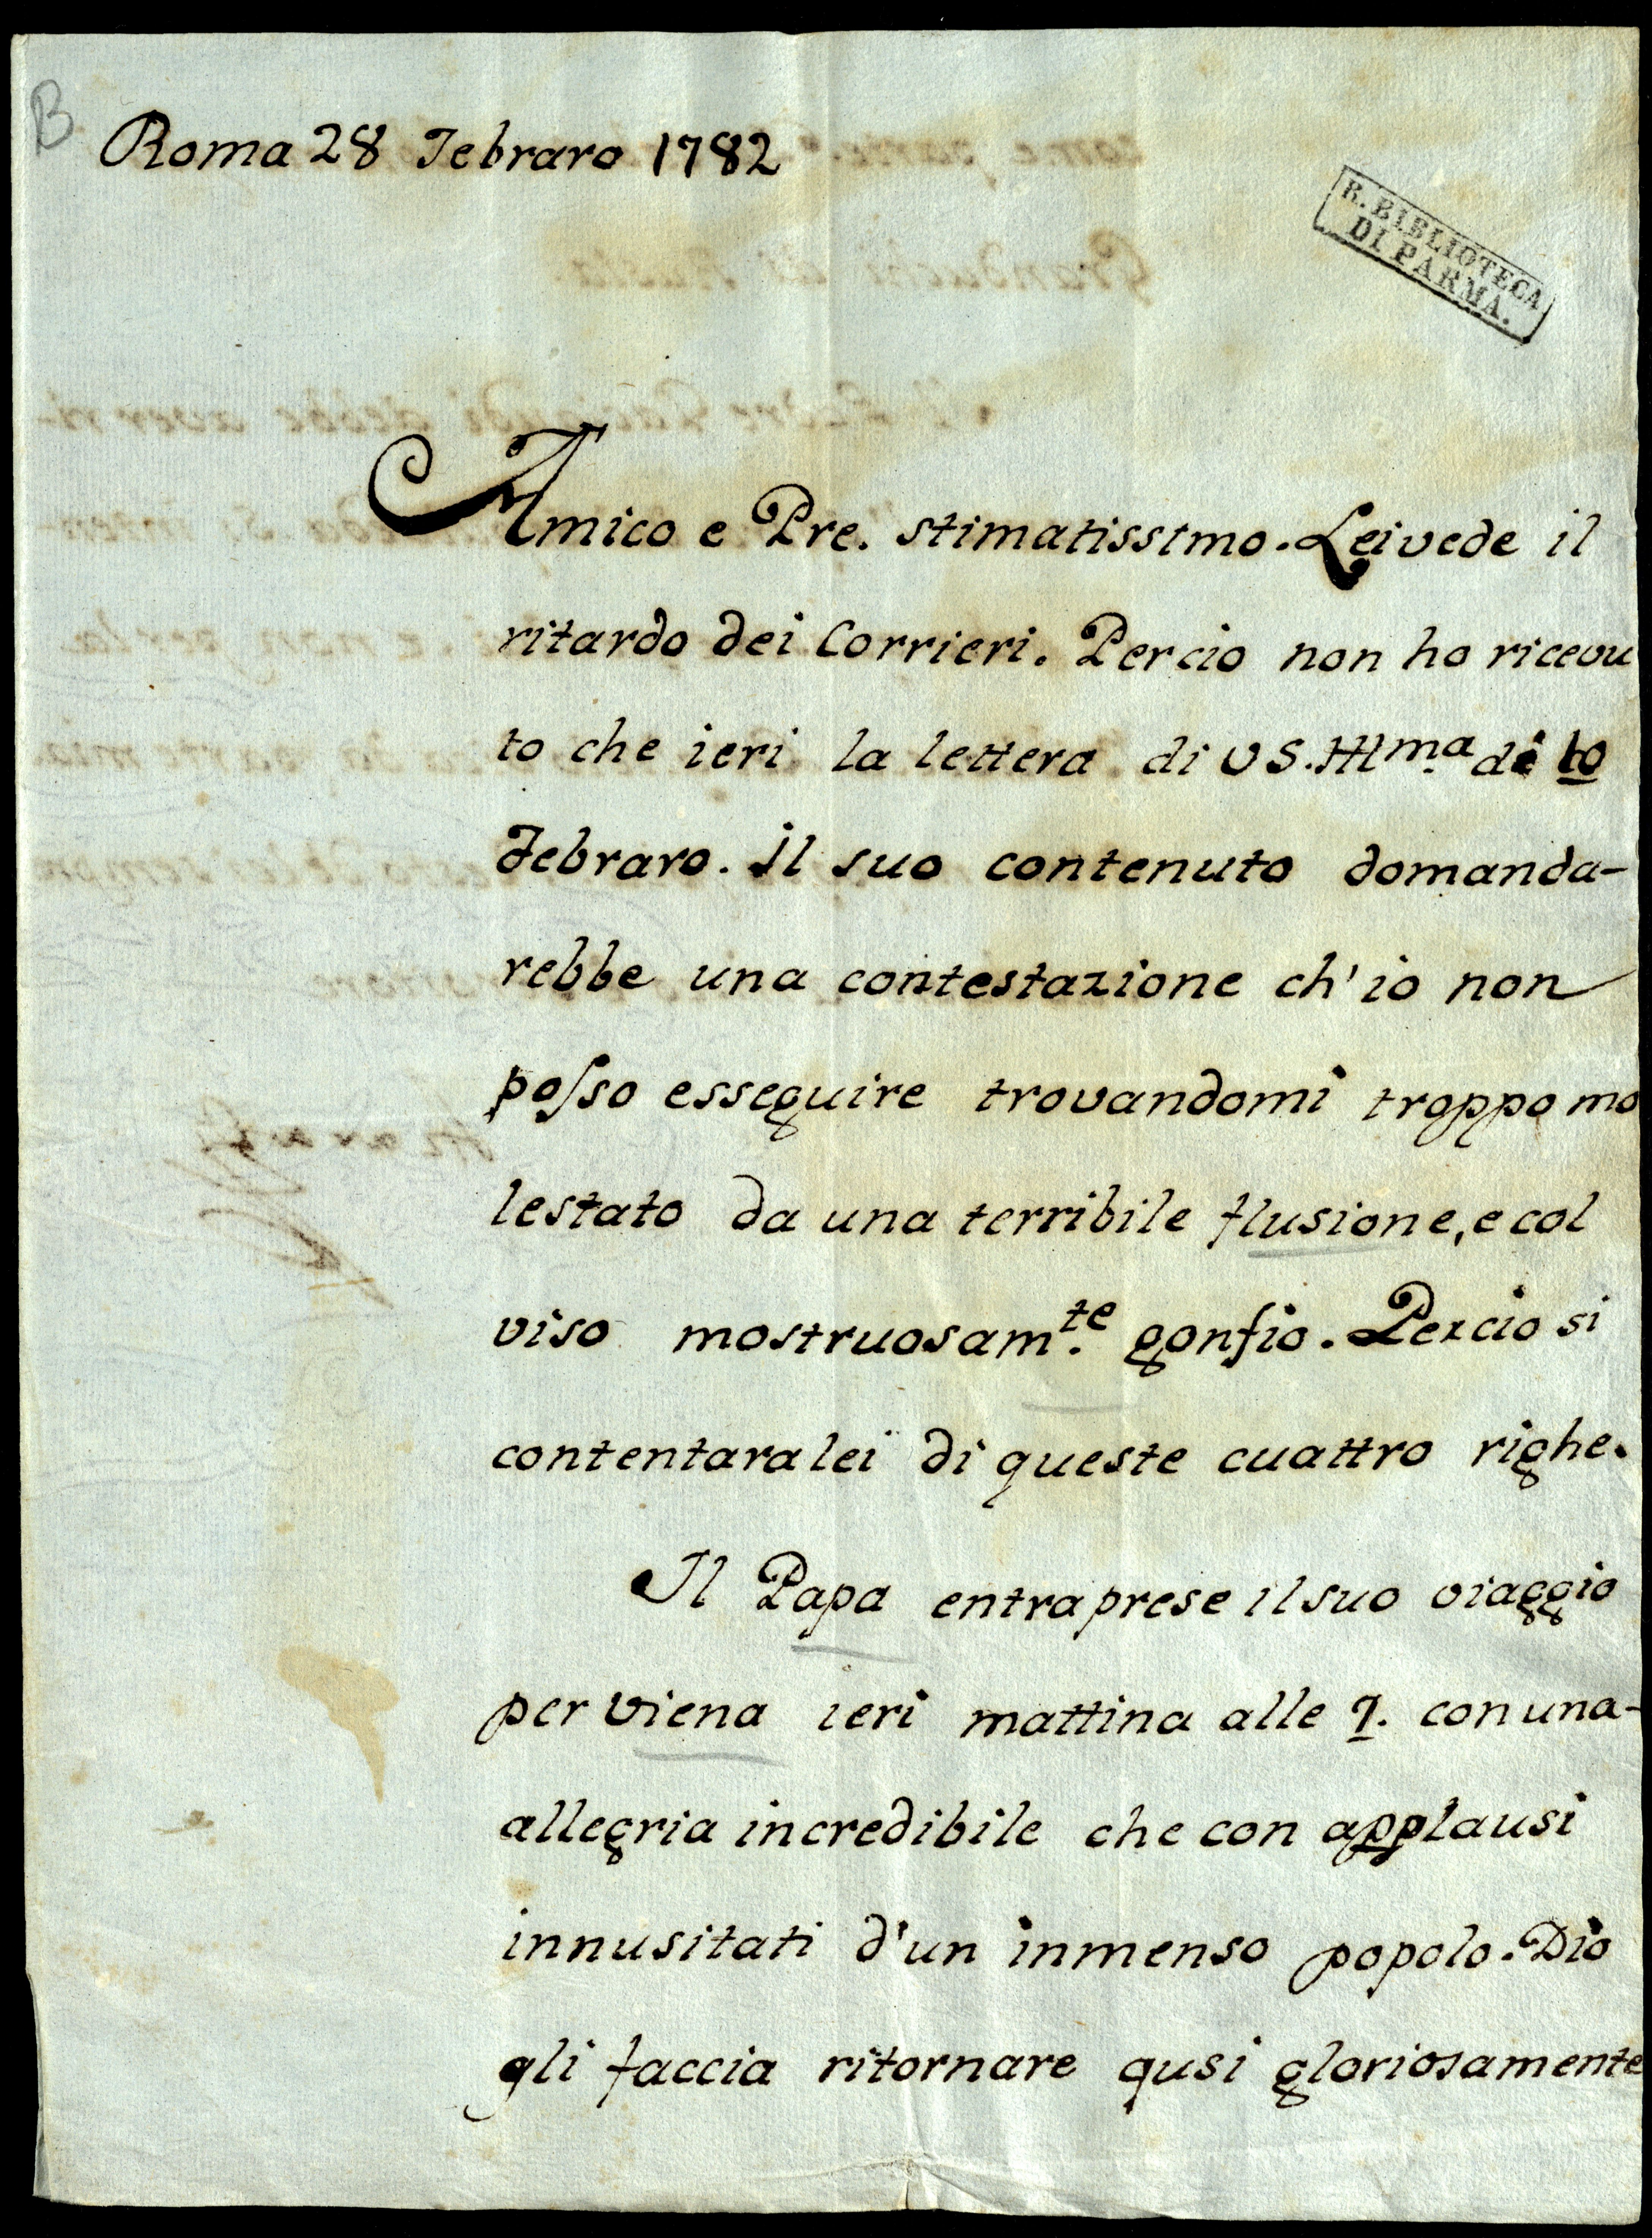 B
Roma 28 Febraro 1782
R. BIBLIOTECA
DI PARMA.
Amico e Pre. stimatissimo. Lei vede il
ritardo dei Corrieri. Percio non ho ricevu
to che ieri la lettera di VS. Illma. di 10
Febraro. Il suo contenuto domanda-
rebbe una contestazione ch'io non
posso esseguire trovandomi troppo mo
lestato da una terribile flusione, e col
viso mostruosamte. gonfio. Percio si
contentara lei di queste cuattro righe.
Il Papa entraprese il suo viaggio
per Viena ieri mattina alle con una-
allegria incredibile che con applausi
innusitati d'un inmenso popolo. Dio
gli faccia ritornare qusi gloriosamente